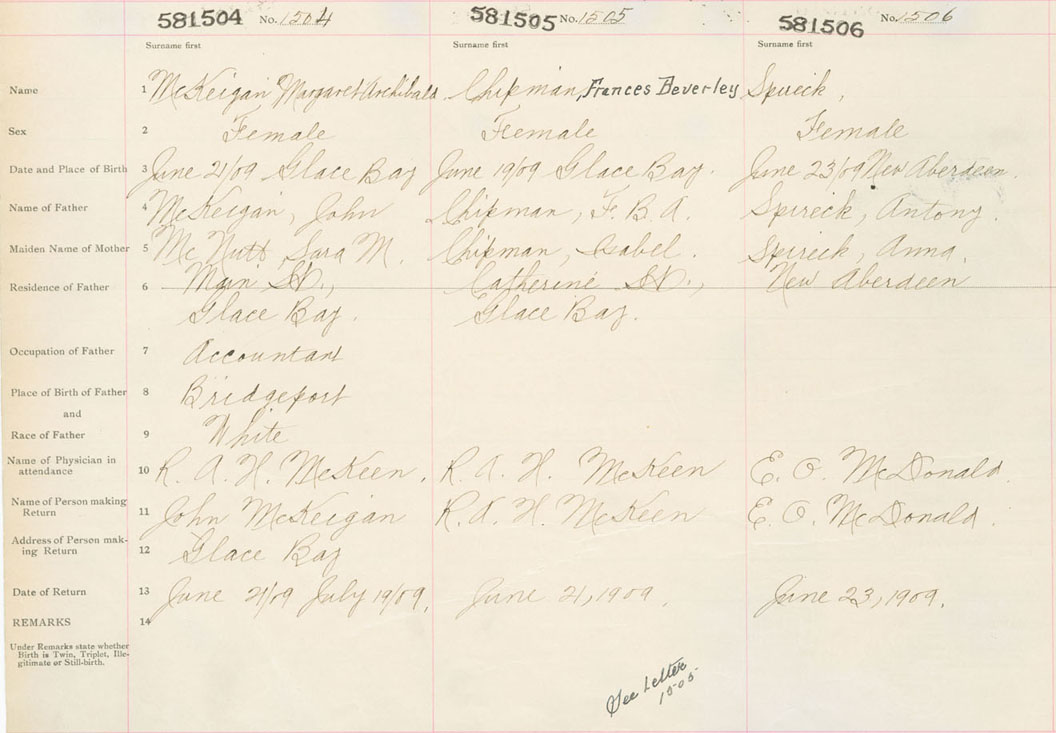 581504 No. 1504 581505 No. 1505 581506 No. 1506
Surname first Surname first Surname first
Name 1 McKeigan Margaret Archibald Chipman, Frances Beverley Spireck,
Sex 2 Female Female Female
Date and Place of Birth 3 June 21/09 Glace Bay June 19/09 Glace Bay. June 23/09 New Aberdeen.
Name of Father 4 McKeigan, John Chipman, F. B. A. Spireck, Antony.
Maiden Name of Mother 5 McNutt Sara M. Chipman, Isabel. Spireck, Anna.
Residence of Father 6 Main St., Catherine St., New Aberdeen
Glace Bay. Glace Bay.
Occupation of Father 7 Accountant
Place of Birth of Father 8 Bridgeport
and
Race of Father 9 White
Name of Physician in
attendance 10 R. A. H. McKeen. R. A. H. McKeen E. O. McDonald.
Name of Person making
Return 11 John McKeigan R. A. H. McKeen E. O. McDonald.
Address of Person mak-
ing Return 12 Glace Bay
Date of Return 13 June 21/09 July 19/09. June 21, 1909. June 23, 1909.
REMARKS 14
Under Remarks state whether
Birth is Twin, Triplet, Ille-
gitimate or Still-birth.
See Letter
1505